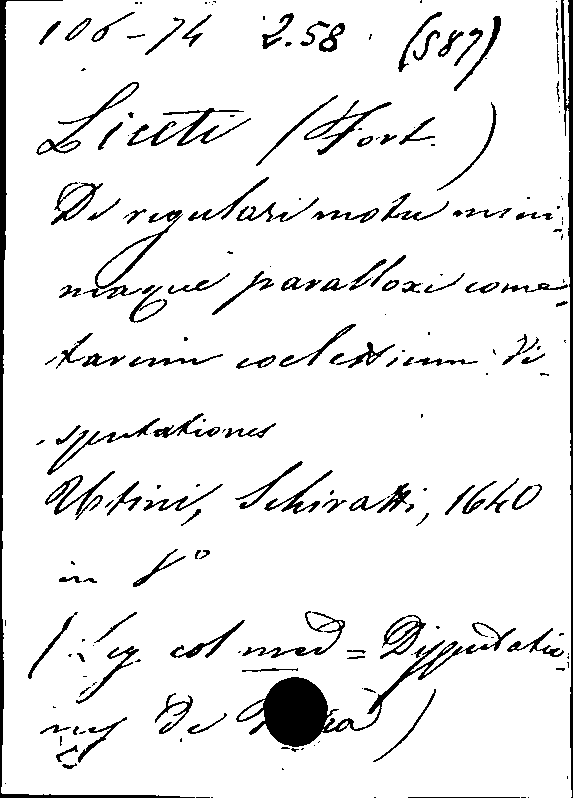 106-74 2.58 (587)
Liceti (Fort.)
De regulari motu mini-
maque parallaxi come-
tarum coelestium di-
sputationes
Utini, Schiratti, 1640
in 8º
(Leg col med = Disputatio-
nes de